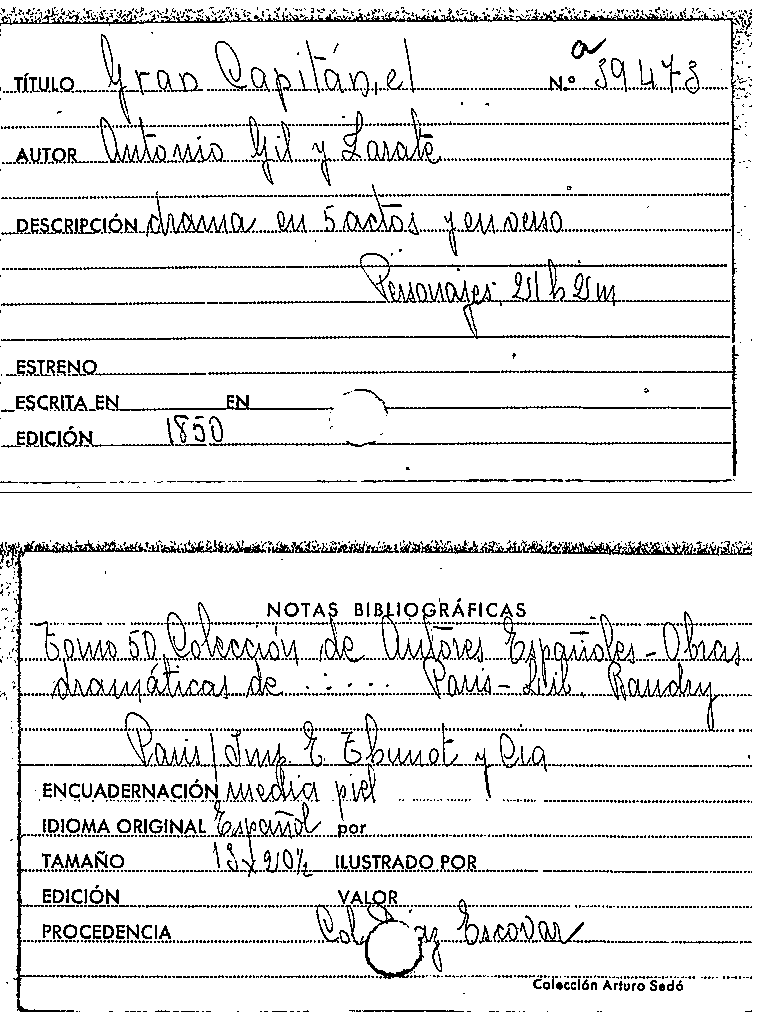 TÍTULO Gran Capitán, el N.º a 39473
AUTOR Antonio Gil y Zarate
DESCRIPCIÓN drama en 5 actos y en verso
Personajes, 21 h 2 m
ESTRENO
ESCRITA EN EN
EDICIÓN 1850
NOTAS BIBLIOGRÁFICAS
Tomo 50, Colección de Autores Españoles - Obras
dramáticas de ..... Paris - Lib. Baudry
Paris / Imp. E. Thunot y Cia
ENCUADERNACIÓN media piel
IDIOMA ORIGINAL Español por
TAMAÑO 13 x 20½ ILUSTRADO POR
EDICIÓN VALOR
PROCEDENCIA Col. Díaz Escovar
Colección Arturo Sedó